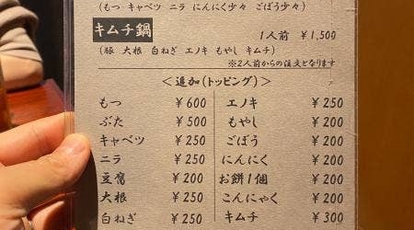 (もつ キャベツ ニラ にんにく少々 ごぼう少々)
キムチ鍋
1人前 ¥1,500
(豚 大根 白ねぎ エノキ もやし キムチ)
※2人前からの注文となります
<追加(トッピング)>
もつ ¥600
ぶた ¥500
キャベツ ¥250
ニラ ¥250
豆腐 ¥200
大根 ¥250
白ねぎ ¥250
エノキ ¥250
もやし ¥200
ごぼう ¥200
にんにく ¥200
お餅1個 ¥200
こんにゃく ¥200
キムチ ¥300